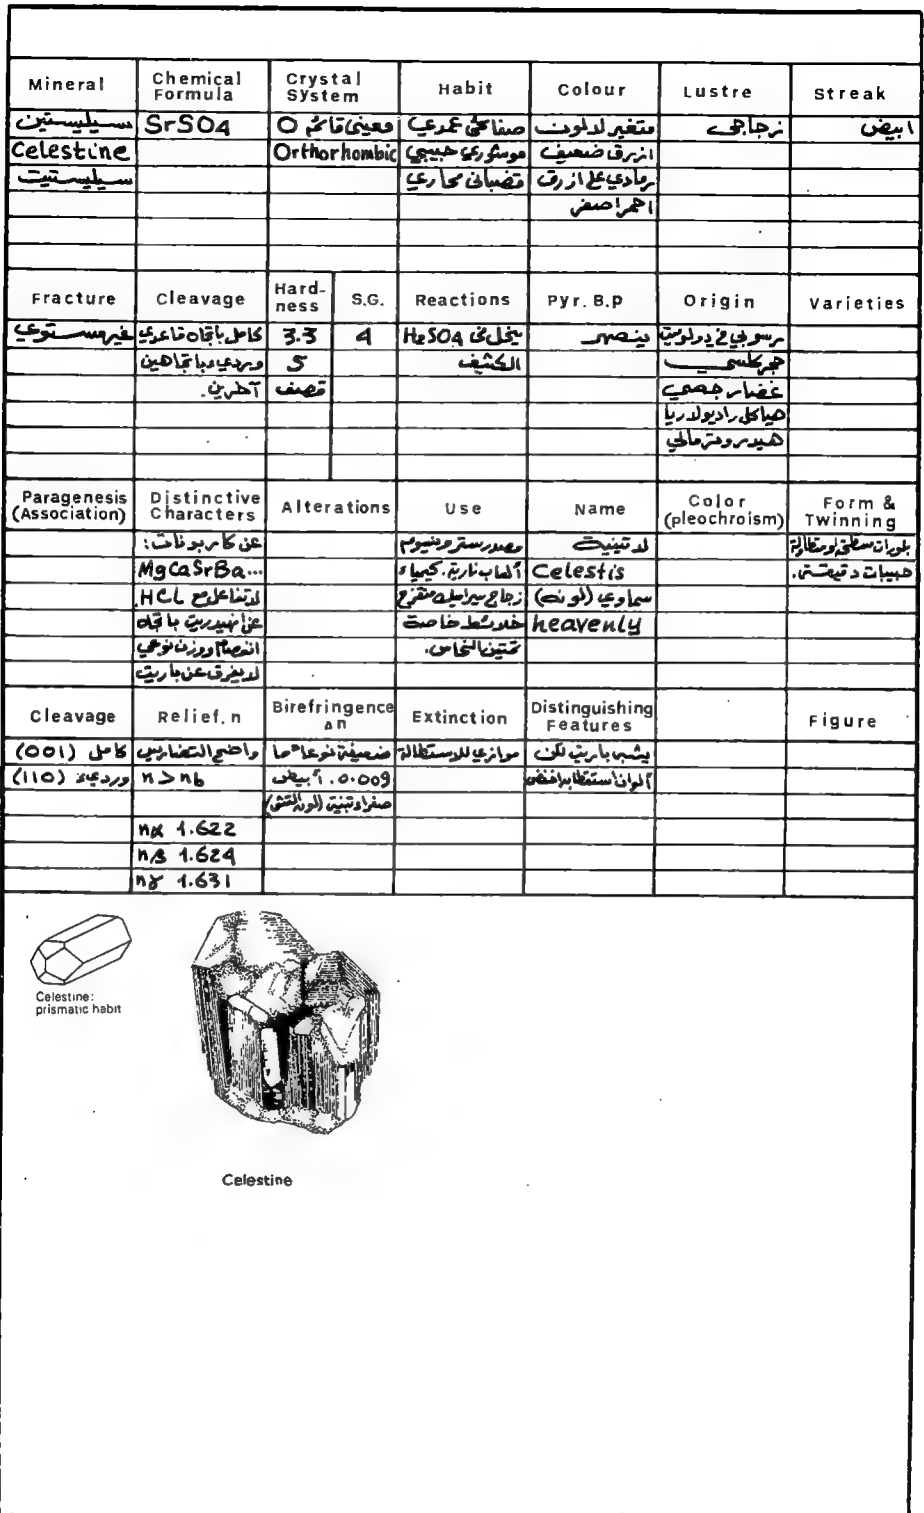 Mineral Chemical Formula Crystal System Habit Colour Lustre Streak
سيليستين SrSO4 معيني قائم O صفائحي عمدي متغير لا لون زجاجي ابيض
Celestine Orthorhombic موشوري حبيبي ازرق ضعيف
سيليستيت قضباني محاري رمادي على ازرق
احمر اصفر
Fracture Cleavage Hard-ness S.G. Reactions Pyr. B.p Origin Varieties
غير مستوي كامل باتجاه قاعدي 3.3 4 ينحل في H2SO4 ينصهر رسوبي في دولوميت
ورديء باتجاهين 5 الكثيف حجر كلسي
آخرين. قصف غضار جصي
هياكل راديولاريا
هيدروترمالي
Paragenesis (Association) Distinctive Characters Alterations Use Name Color (pleochroism) Form & Twinning
عن كاربونات: مصدر سترونسيوم لاتينية بلورات سطحية أو متطاولة
MgCaSrBa... ألعاب نارية. كيمياء Celestis حبيبات
لا تتفاعل مع HCL. زجاج سيراميك متقزح سماوي (لونه)
عن انهيدريت باتجاه خلائط خاصة heavenly
انفصام ووزن نوعي تمتين النحاس.
لا يفرق عن باريت
Cleavage Relief. n Birefringence Δn Extinction Distinguishing Features Figure
كامل (001) واضح التضاريس ضعيفة نوعا ما موازي للاستطالة يشبه باريت لكن
ورديء (110) n > nb 0.009. أبيض ألوان استقطابه اخفض
صفراء تبنية
nα 1.622
nβ 1.624
nγ 1.631
Celestine:
prismatic habit
Celestine